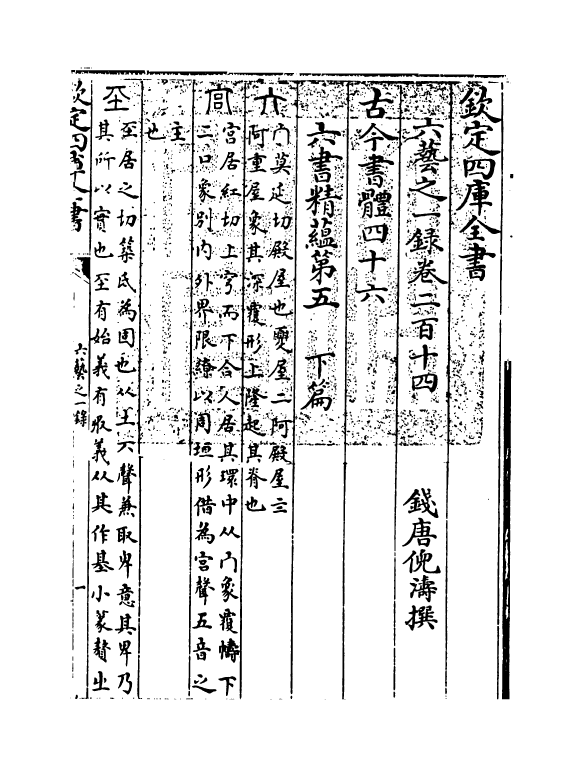 欽定四庫全書
六藝之一錄卷二百十四
錢唐倪濤撰
古今書體四十六
六書精蘊第五　下篇
宀莫延切殿屋也夏屋二阿殿屋三
阿重屋象其深覆形上隆起其脊也
宮居紅切上穹而下合人居其環中从宀象覆幬下
二口象別內外界限繚以周垣形借為宮聲五音之
主
也
至居之切築氐為固也从土六聲兼取卑意其卑乃
其所以實也至有始義有收義从其作基小篆贅㞢
欽定四庫全書
六藝之一錄
一